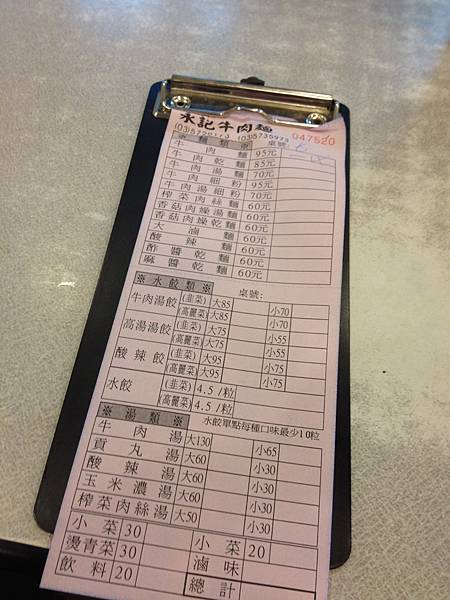 永記牛肉麵
(03)5720173 (03)5735973 047520
※麵類※ 桌號:
牛肉麵 95元
牛肉乾麵 85元
牛肉湯麵 70元
牛肉細粉 95元
牛肉湯細粉 70元
榨菜肉絲麵 60元
香菇肉燥湯麵 60元
香菇肉燥乾麵 60元
大滷麵 60元
酸辣麵 60元
酢醬乾麵 60元
麻醬乾麵 60元
※水餃類※ 桌號:
牛肉湯餃 (韭菜) 大85 小70
(高麗菜) 大85 小70
高湯湯餃 (韭菜) 大75 小55
(高麗菜) 大75 小55
酸辣餃 (韭菜) 大95 小75
(高麗菜) 大95 小75
水餃 (韭菜) 4.5/粒
(高麗菜) 4.5/粒
※湯類※ 水餃單點每種口味最少10粒
牛肉湯 大130 小65
貢丸湯 大60 小30
酸辣湯 大60 小30
玉米濃湯 大60 小30
榨菜肉絲湯 大50 小30
小菜30 小菜20
燙青菜30 滷味
飲料20 總計